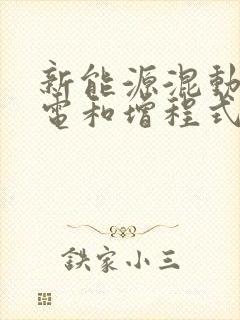 新能源混動
電和增程式
鉄家小三